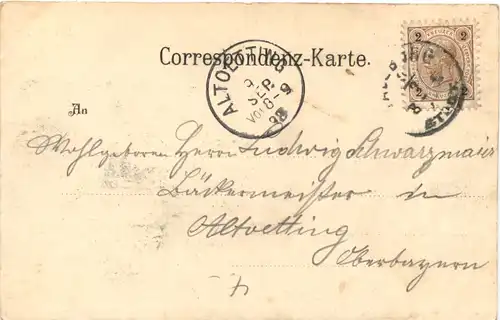 Correspondenz-Karte.
ALTOETTING
9 SEP.
VOR 8-9
98
2 2
An
Wohlgeboren Herrn Ludwig Schwarzmaier
Bäckermeister in
Altoetting
Oberbayern